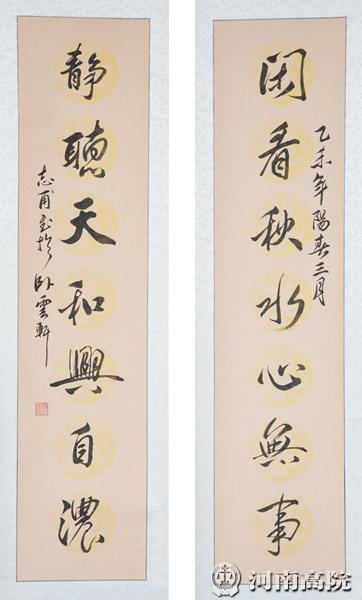 乙未年陽春三月
閑看秋水心無事
静聽天和興自濃
志甫書於卧雲軒
河南高院